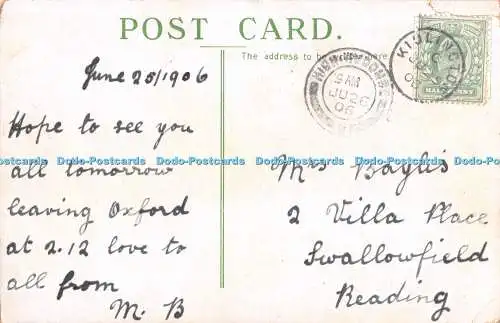 POST CARD.
The address to be here
June 25/1906
Hope to see you
all tomorrow
leaving Oxford
at 2.12 love to
all from
M. B
Mrs Baylis
2 Villa Place
Swallowfield
Reading
9 AM
JU 26
06
KIDLINGTON
HALFPENNY
Dodo-Postcards Dodo-Postcards Dodo-Postcards Dodo-Postcards Dodo-Postcards
Dodo-Postcards Dodo-Postcards Dodo-Postcards Dodo-Postcards